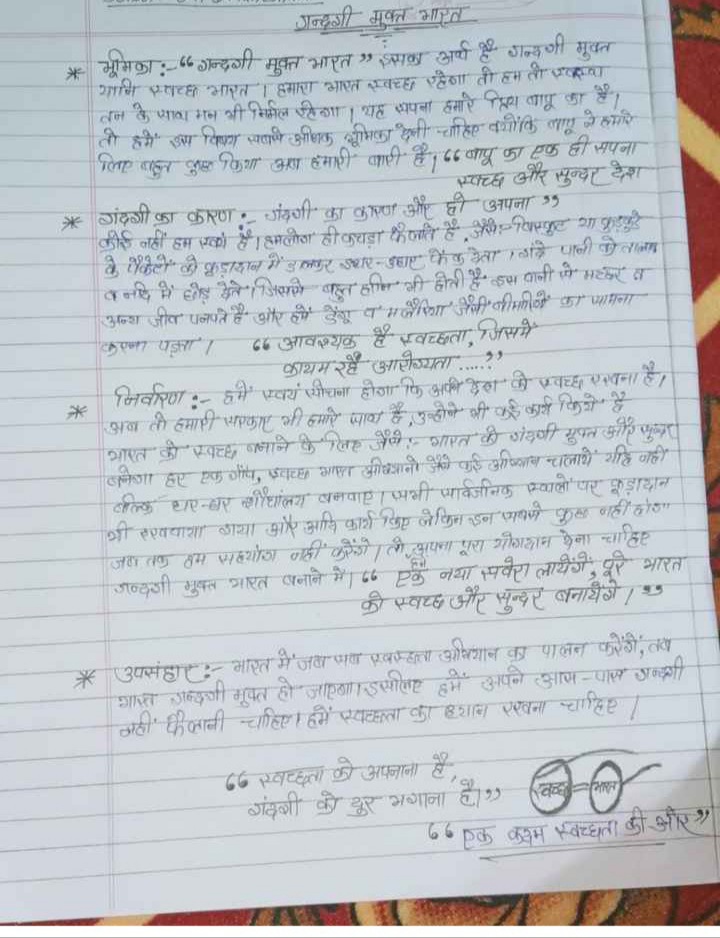 गन्दगी मुक्त भारत
* भूमिका :- "गन्दगी मुक्त भारत" इसका अर्थ है गन्दगी मुक्त
यानि स्वच्छ भारत । हमारा भारत स्वच्छ रहेगा तो हम तो
तन के साथ मन भी निर्मल रहेगा । यह सपना हमारे प्रिय बापू का है।
तो हमें इस विषय सबसे अधिक भूमिका देनी चाहिए क्योंकि बापू ने हमारे
लिए बहुत कुछ किया अब हमारी बारी है। "बापू का एक ही सपना
स्वच्छ और सुन्दर देश
हो अपना"
* गंदगी का कारण :- गंदगी का कारण और
कोई नहीं हम स्वयं हैं। हमलोग ही कचड़ा फैलाते हैं, जैसे:- बिस्कुट या कुड़कुड़े
के पैकेटों को कूड़ादान में डालकर इधर-उधर फेंक देना । गंदे पानी को तालाब
व नदि में छोड़ देते। जिससे बहुत हानि भी होती है इस पानी से मच्छर व
अन्य जीव पनपते है और हमें डेंगू व मलेरिया जैसी बीमारियों का सामना
करना पड़ता । "आवश्यक है स्वच्छता, जिसमें
कायम रहे आरोग्यता ....."
* निर्वारण :- हमें स्वयं सोचना होगा कि अपने देश को स्वच्छ रखना है।
अब तो हमारी सरकार भी हमारे साथ है, उन्होंने भी कई कार्य किये है
भारत को स्वच्छ बनाने के लिए जैसे :- भारत की गंदगी मुक्त और सुन्दर
बनेगा हर एक गाँव, स्वच्छ भारत अभियानो जैसे कई अभियान चलाये यहि नहीं
बल्कि घर-घर शौचालय बनवाए। सभी सार्वजनिक स्थलों पर कूड़ादान
भी रखवाया गया और आदि कार्य किए लेकिन इन सबसे कुछ नहीं होगा
जब तक हम सहयोग नहीं करेंगे। तो हमें अपना पूरा योगदान देना चाहिए
गन्दगी मुक्त भारत बनाने में। "एक नया सवेरा लायेंगें, पूरे भारत
को स्वच्छ और सुन्दर बनायेंगे।"
* उपसंहार :- भारत में जब सब स्वच्छता अभियान का पालन करेंगें, तब
भारत गन्दगी मुक्त हो जाएगा। इसीलिए हमें अपने आस-पास गन्दगी
नहीं फैलानी चाहिए। हमें स्वच्छता का ध्यान रखना चाहिए ।
"स्वच्छता को अपनाना है,
गंदगी को दूर भगाना है।"
स्वच्छ भारत
"एक कदम स्वच्छता की ओर"